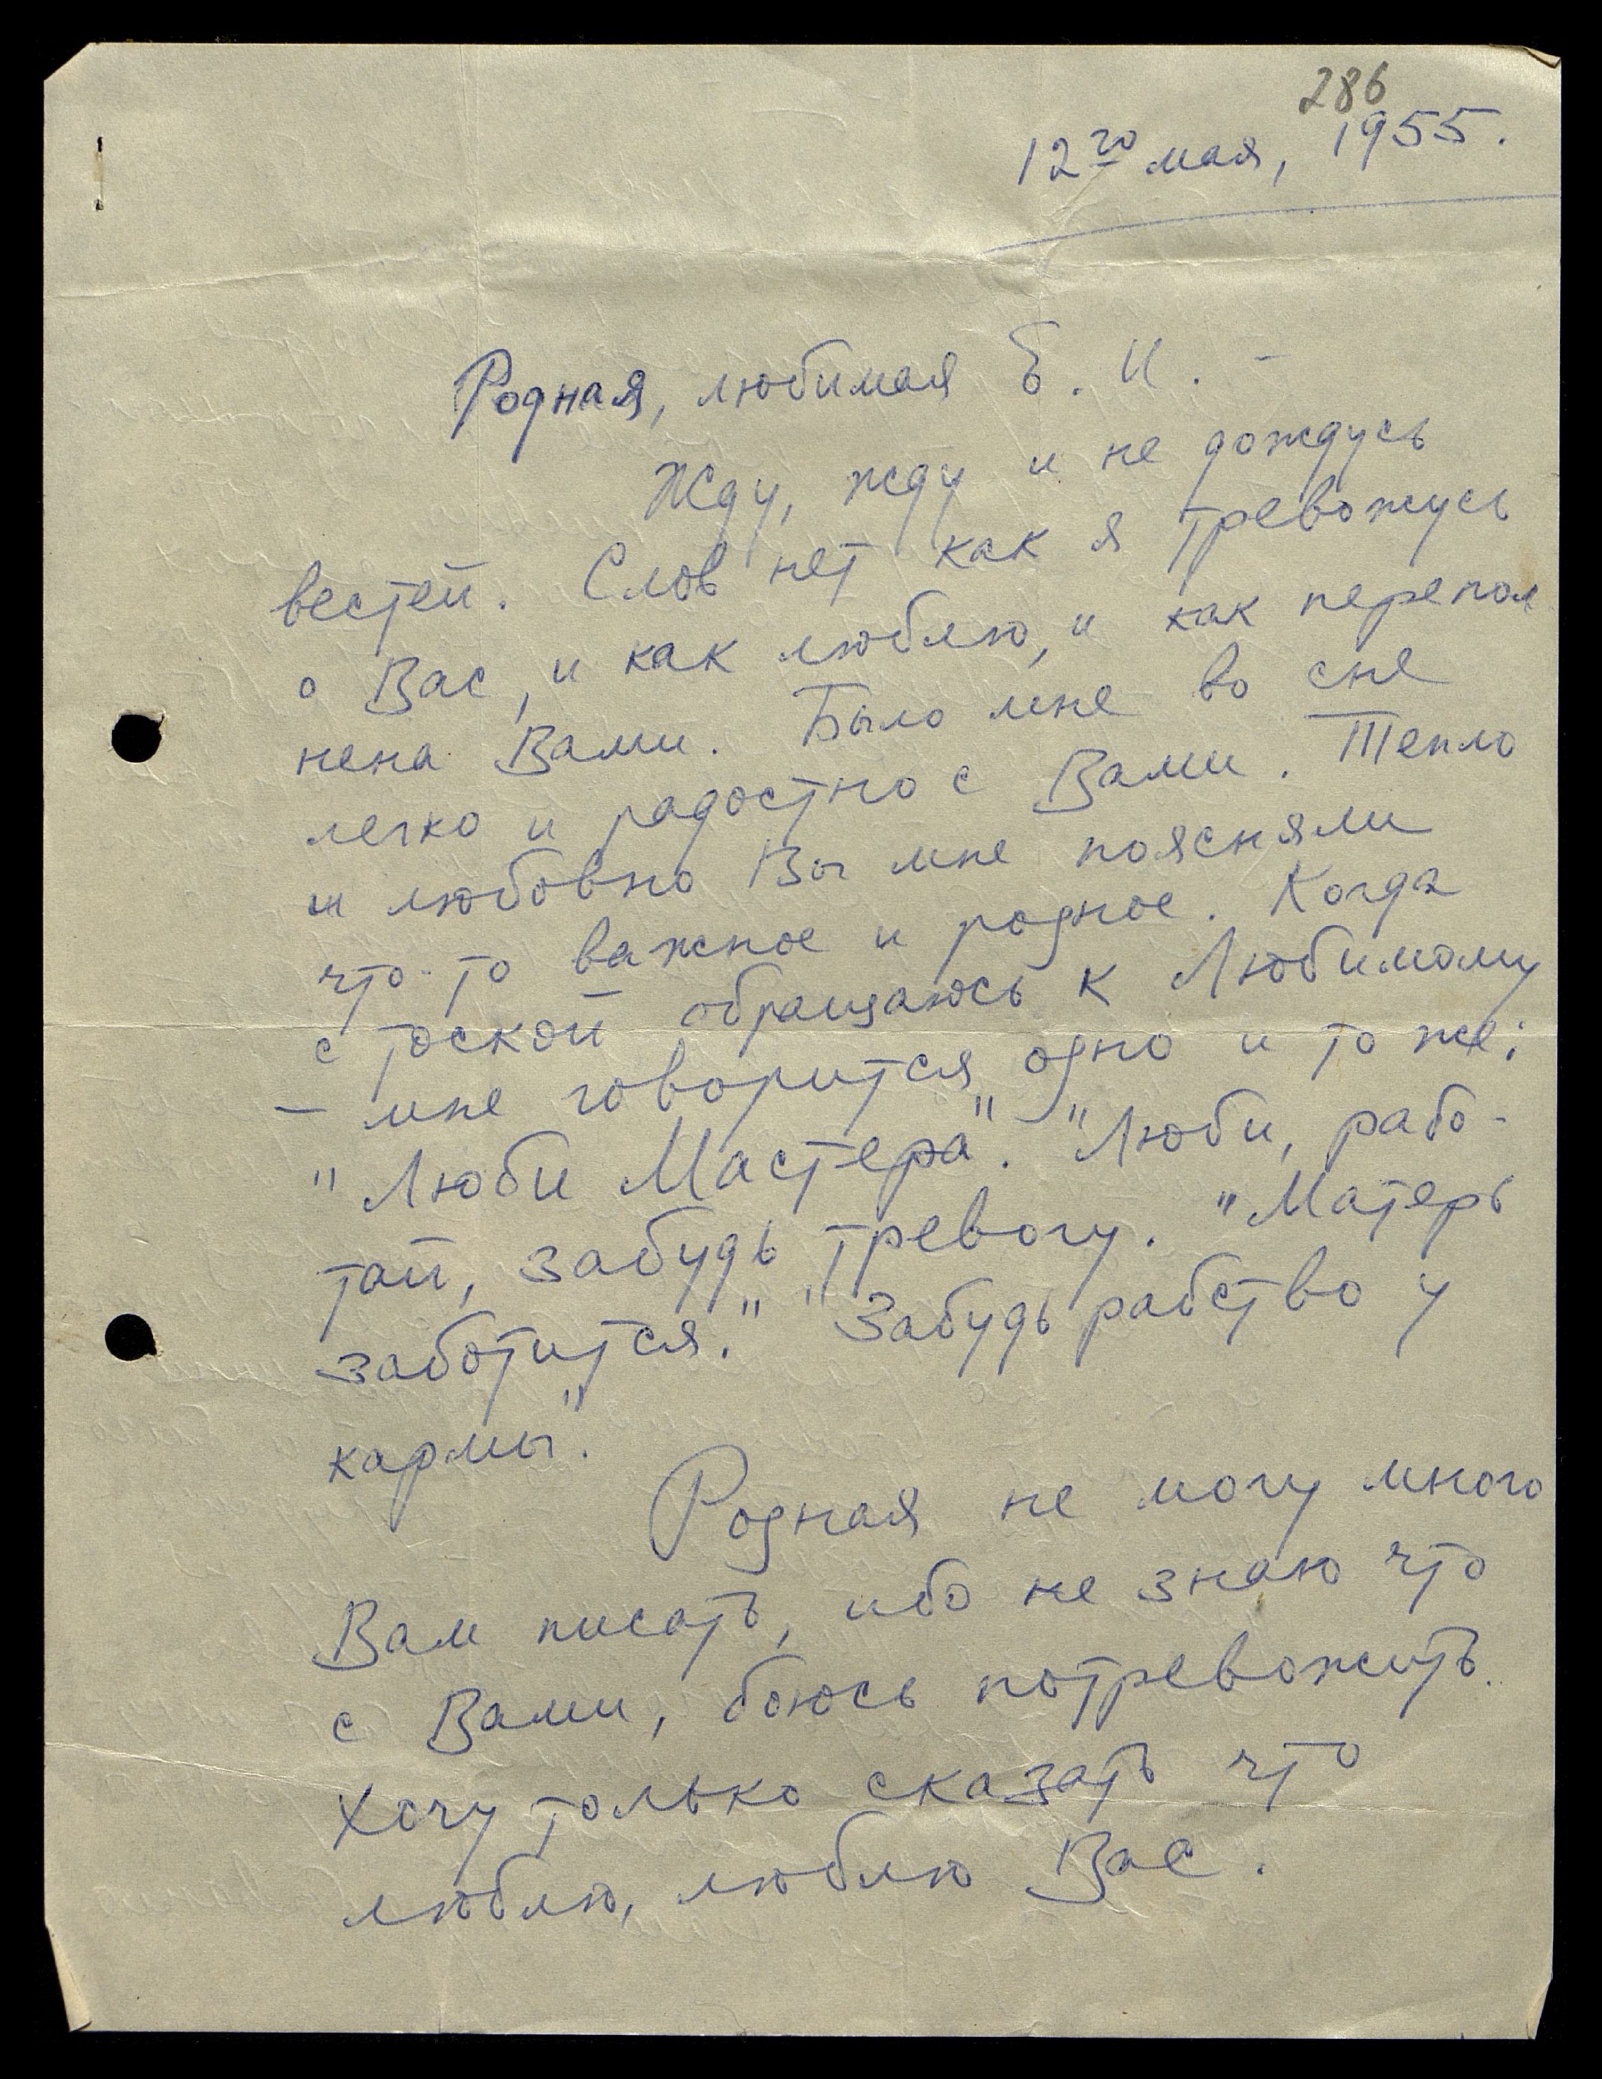 286
12го мая, 1955.
Родная, любимая Е. И. –
Жду, жду и не дождусь
вестей. Слов нет как я тревожусь
о Вас, и как люблю, и как перепол
нена Вами. Было мне во сне
легко и радостно с Вами. Тепло
и любовно Вы мне поясняли
что-то важное и родное. Когда
с тоской обращаюсь к Любимому
– мне говорится одно и то же:
"Люби Мастера". "Люби, рабо-
тай, забудь тревогу. "Матерь
заботится." "Забудь рабство у
кармы".
Родная не могу много
Вам писать, ибо не знаю что
с Вами, боюсь потревожить.
Хочу только сказать что
люблю, люблю Вас.